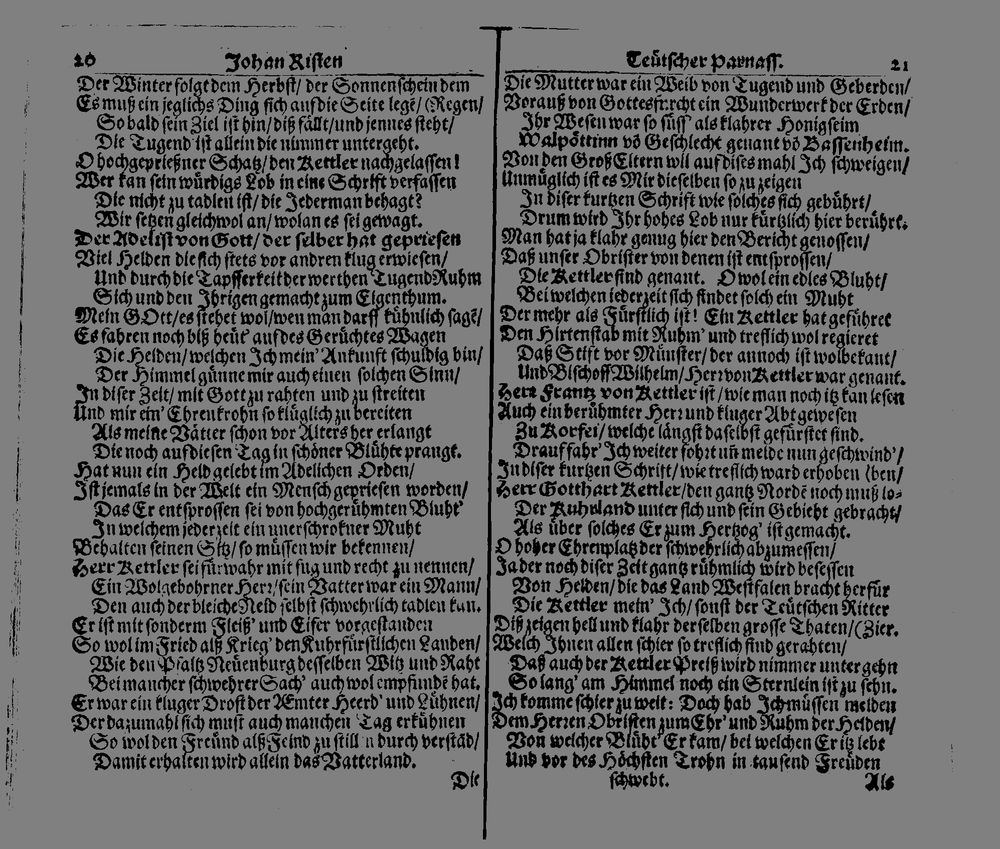 20 Johan Risten
Der Winter folgt dem Herbst/ der Sonnenschein dem
Es muß ein jeglichs Ding sich auf die Seite legẽ/ (Regen/
So bald sein Ziel ist hin/ diß fällt/ und jennes steht/
Die Tugend ist allein die nimmer untergeht.
O hochgepriesner Schatz/ den Kettler nachgelassen!
Wer kan sein würdigs Lob in eine Schrift verfassen
Die nicht zu tadlen ist/ die Jederman behagt?
Wir setzen gleichwol an/ wolan es sei gewagt.
Der Adel ist von Gott/ der selber hat gepriesen
Viel Helden die sich stets vor andren klug erwiesen/
Und durch die Tapfferkeit der werthen Tugend Ruhm
Sich und den Ihrigen gemacht zum Eigenthum.
Mein GOtt/ es stehet wol/ wen man darff kühnlich sagẽ/
Es fahren noch biß heüt' auf des Gerüchtes Wagen
Die Helden/ welchen Ich mein' Ankunft schuldig bin/
Der Himmel günne mir auch einen solchen Sinn/
In diser Zeit/ mit Gott zu rahten und zu streiten
Und mir ein' Ehrenkrohn so klüglich zu bereiten
Als meine Vätter schon vor Alters her erlangt
Die noch auf diesen Tag in schöner Blühte prangt.
Hat nun ein Held gelebt im Adelichen Orden/
Ist jemals in der Welt ein Mensch gepriesen worden/
Das Er entsprossen sei von hochgerühmten Bluht'
In welchem jederzeit ein unerschrokner Muht
Behalten seinen Sitz/ so müssen wir bekennen/
Herr Kettler sei fürwahr mit fug und recht zu nennen/
Ein Wolgebohrner Herr/ sein Vatter war ein Mann/
Den auch der bleiche Neid selbst schwehrlich tadlen kan.
Er ist mit sonderm Fleiß' und Eifer vorgestanden
So wol im Fried alß Krieg' den Kuhrfürstlichen Landen/
Wie den Pfaltz Neüenburg desselben Witz und Raht
Bei mancher schwehrer Sach' auch wol empfundẽ hat.
Er war ein kluger Drost der Æmter Heerd' und Lühnen/
Der dazumahl sich must auch manchen Tag erkühnen
So wol den Freünd alß Feind zu still n durch verstãd/
Damit erhalten wird allein das Vatterland.
Die
Teütscher Parnass. 21
Die Mutter war ein Weib von Tugend und Geberden/
Vorauß von Gottesfurcht ein Wunderwerk der Erden/
Ihr Wesen war so süss' als klahrer Honigseim
Walpöttinn võ Geschlecht genant võ Bassenheim.
Von den GroßEltern wil auf dises mahl Ich schweigen/
Unmüglich ist es Mir dieselben so zu zeigen
In diser kurtzen Schrift wie solches sich gebührt/
Drum wird Ihr hohes Lob nur kürtzlich hier berührt.
Man hat ja klahr genug hier den Bericht genossen/
Daß unser Obrister von denen ist entsprossen/
Die Kettler sind genant. O wol ein edles Bluht/
Bei welchen jederzeit sich findet solch ein Muht
Der mehr als Fürstlich ist! Ein Kettler hat geführet
Den Hirtenstab mit Ruhm' und treflich wol regieret
Daß Stift vor Münster/ der annoch ist wolbekant/
Und Bischoff Wilhelm/ Herr von Kettler war genant.
Herr Frantz von Kettler ist/ wie man noch itz kan lesen
Auch ein berühmter Herr und kluger Abt gewesen
Zu Korfei/ welche längst daselbst gefürstet sind.
Drauf fahr' Ich weiter fohrt uñ meide nun geschwind'/
In diser kurtzen Schrift/ wie treflich ward erhoben (ben/
Herr Gotthart Kettler/ den gantz Nordẽ noch muß lo-
Der Kuhrland unter sich und sein Gebieht gebracht/
Als über solches Er zum Hertzog' ist gemacht.
O hoher Ehrenplatz der schwehrlich abzumessen/
Ja der noch diser Zeit gantz rühmlich wird besessen
Von Helden/ die das Land Westfalen bracht herfür
Die Kettler mein' Ich/ sonst der Teütschen Ritter
Diß zeigen hell und klahr derselben grosse Thaten/ (Zier.
Welch Ihnen allen schier so treflich sind gerahten/
Daß auch der Kettler Preiß wird nimmer untergehn
So lang' am Himmel noch ein Sternlein ist zu sehn.
Ich komme schier zu weit: Doch hab Ich müssen melden
Dem Herren Obristen zum Ehr' und Ruhm der Helden/
Von welcher Blüht' Er kam/ bei welchen Er itz lebt
Und vor des Höchsten Trohn in tausend Freüden
schwebt. Als